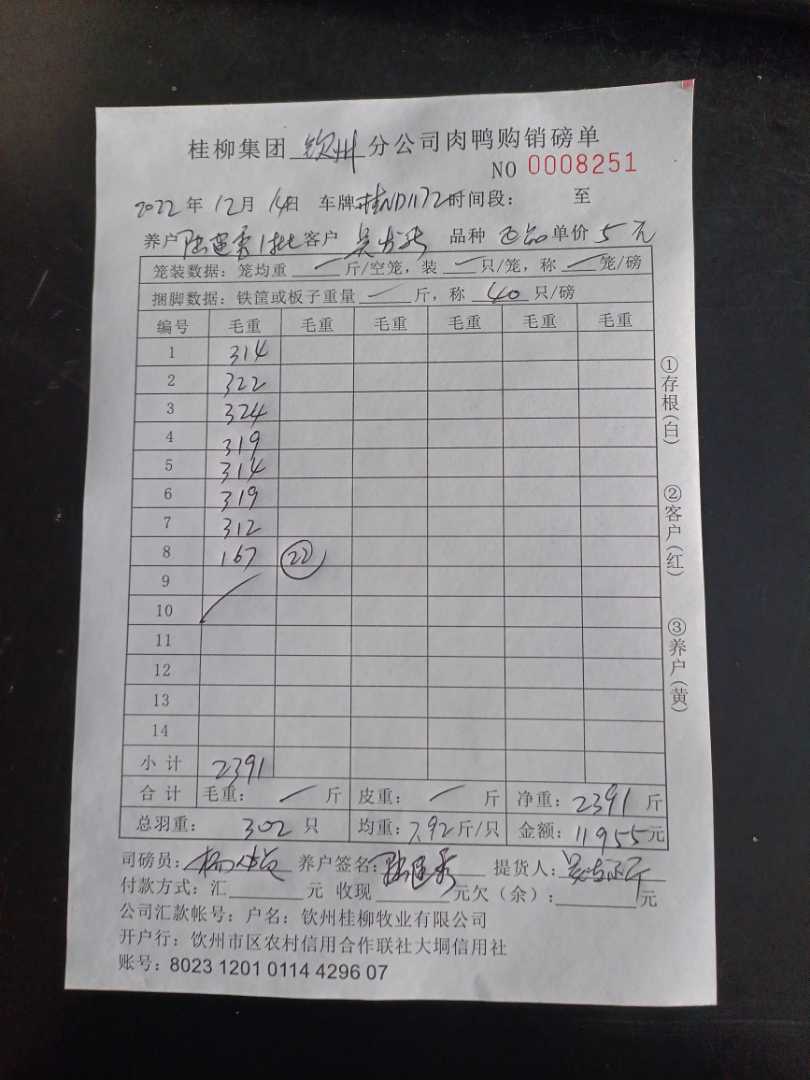 桂柳集团 钦州 分公司肉鸭购销磅单
NO 0008251
2022 年 12月 14日 车牌 桂ND1172 时间段： 至
养户 陆连秀1批 客户 吴 品种 正品 单价 5 元
笼装数据：笼均重 一 斤/空笼，装 一 只/笼，称 一 笼/磅
捆脚数据：铁筐或板子重量 一 斤，称 40 只/磅
编号 毛重 毛重 毛重 毛重 毛重 毛重
1 314
2 322
3 324
4 319
5 314
6 319
7 312
8 167 22
9
10
11
12
13
14
小 计 2391
合 计 毛重： 一 斤 皮重： 一 斤 净重：2391 斤
总羽重： 302 只 均重：7.92 斤/只 金额：11955 元
司磅员： 养户签名：陆连秀 提货人：吴
付款方式：汇 元 收现 元欠（余）： 元
公司汇款帐号：户名：钦州桂柳牧业有限公司
开户行：钦州市区农村信用合作联社大垌信用社
账号：8023 1201 0114 4296 07
①存根(白)
②客户(红)
③养户(黄)